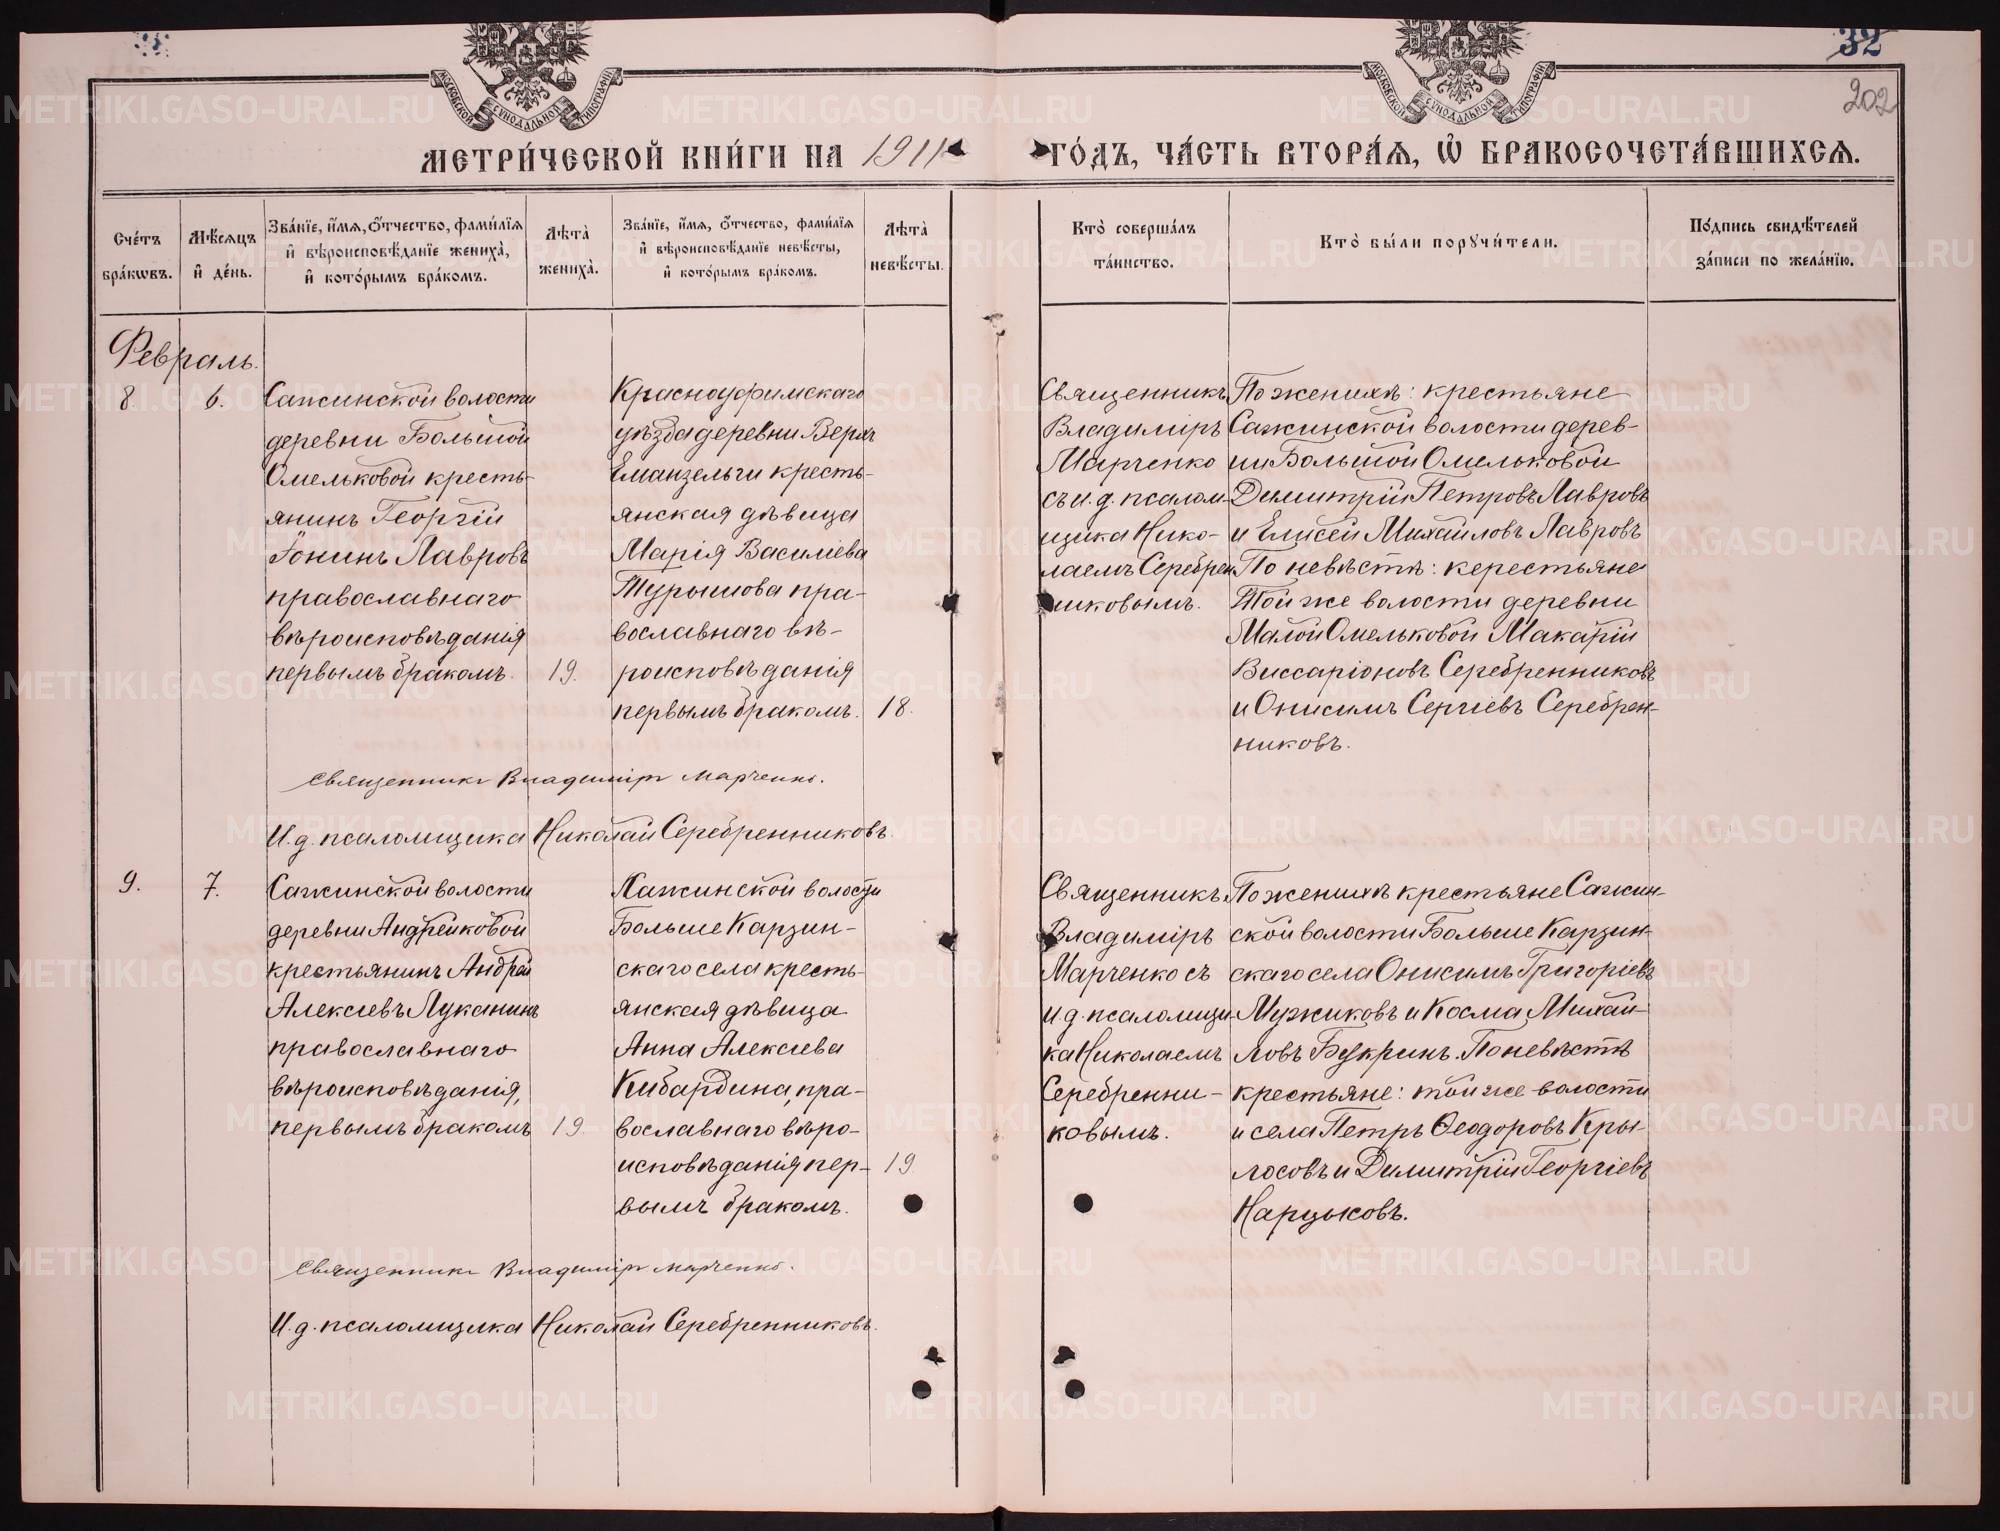 32
202
МОСКОВСКОЙ СѴНОДАЛЬНОЙ ТИПОГРАФІИ
МОСКОВСКОЙ СѴНОДАЛЬНОЙ ТИПОГРАФІИ
МЕТРИ́ЧЕСКОЙ КНИ́ГИ НА 1911 ГО́ДЪ, ЧА́СТЬ ВТОРА́Ѧ, Ѡ БРАКОСОЧЕТА́ВШИХСѦ.
Сче́тъ бра́кѡвъ.
Мѣ́сѧцъ и де́нь.
Зва́нїе, и́мѧ, ѻ́тчество, фами́лїѧ и вѣроисповѣ́данїе жениха̀, и кото́рымъ бра́комъ.
Лѣ́та жениха̀.
Зва́нїе, и́мѧ, ѻ́тчество, фами́лїѧ и вѣроисповѣ́данїе невѣ́сты, и кото́рымъ бра́комъ.
Лѣ́та невѣ́сты.
Кто̀ соверша́лъ та́инство.
Кто̀ бы́ли порꙋчи́тели.
По́дпись свидѣ́телей за́писи по жела́нїю.
Февраль.
8.
6.
Сажинской волости
деревни Большой
Омельковой кресть-
янинъ Георгій
Іонинъ Лавровъ
православнаго
вѣроисповѣданія
первымъ бракомъ.
19.
Красноуфимскаго
уѣзда деревни Верхъ
Еманзельги кресть-
янская дѣвица
Марія Василіева
Турышова пра-
вославнаго вѣ-
роисповѣданія
первымъ бракомъ.
18.
Священникъ
Владиміръ
Марченко
съ и.д. псалом-
щика Нико-
лаемъ Серебрен-
никовымъ.
По женихѣ: крестьяне
Сажинской волости дерев-
ни Большой Омельковой
Димитрій Петровъ Лавровъ
и Елисей Михайловъ Лавровъ
По невѣстѣ: керестьяне
Той же волости деревни
Малой Омельковой Макарій
Виссаріоновъ Серебренниковъ
и Онисимъ Сергіевъ Серебрен-
никовъ.
Священникъ Владиміръ Марченко.
И.д. псаломщика Николай Серебренниковъ.
9.
7.
Сажинской волости
деревни Андрейковой
крестьянинъ Андрей
Алексіевъ Луканинъ
православнаго
вѣроисповѣданія,
первымъ бракомъ
19.
Сажинской волости
Больше Карзин-
скаго села кресть-
янская дѣвица
Анна Алексіева
Кибардина, пра-
вославнаго вѣро-
исповѣданія пер-
вымъ бракомъ.
19.
Священникъ
Владиміръ
Марченко съ
и.д. псаломщи-
ка Николаемъ
Серебренни-
ковымъ.
По женихѣ крестьяне Сажин-
ской волости Больше Карзин-
скаго села Онисимъ Григоріевъ
Мужиковъ и Косма Михай-
ловъ Букринъ. По невѣстѣ
крестьяне: той же волости
и села Петръ Ѳеодоровъ Кры-
лосовъ и Димитрій Георгіевъ
Нарцысовъ.
Священникъ Владиміръ Марченко.
И.д. псаломщика Николай Серебренниковъ.
METRIKI.GASO-URAL.RU